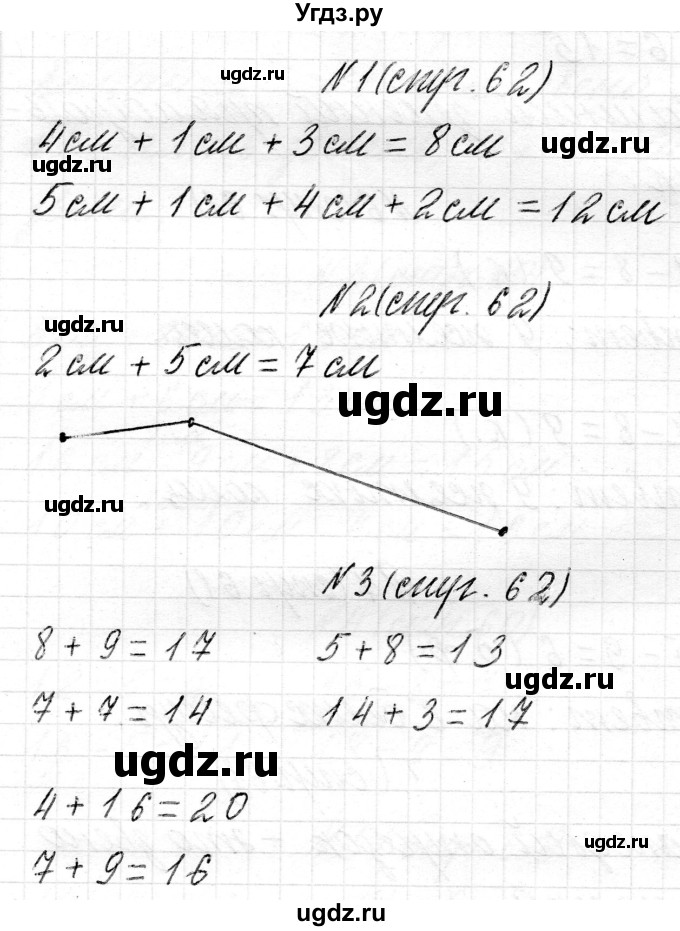 Угдз.ру
ugdz.ru
№1 (стр. 62)
4см + 1см + 3см = 8см
ugdz.ru
ugdz.ru
5см + 1см + 4см + 2см = 12см
№2 (стр. 62)
ugdz.ru
2см + 5см = 7см
ugdz.ru
ugdz.ru
№3 (стр. 62)
8 + 9 = 17 5 + 8 = 13
ugdz.ru
7 + 7 = 14 14 + 3 = 17
ugdz.ru
4 + 16 = 20
ugdz.ru
7 + 9 = 16
ugdz.ru